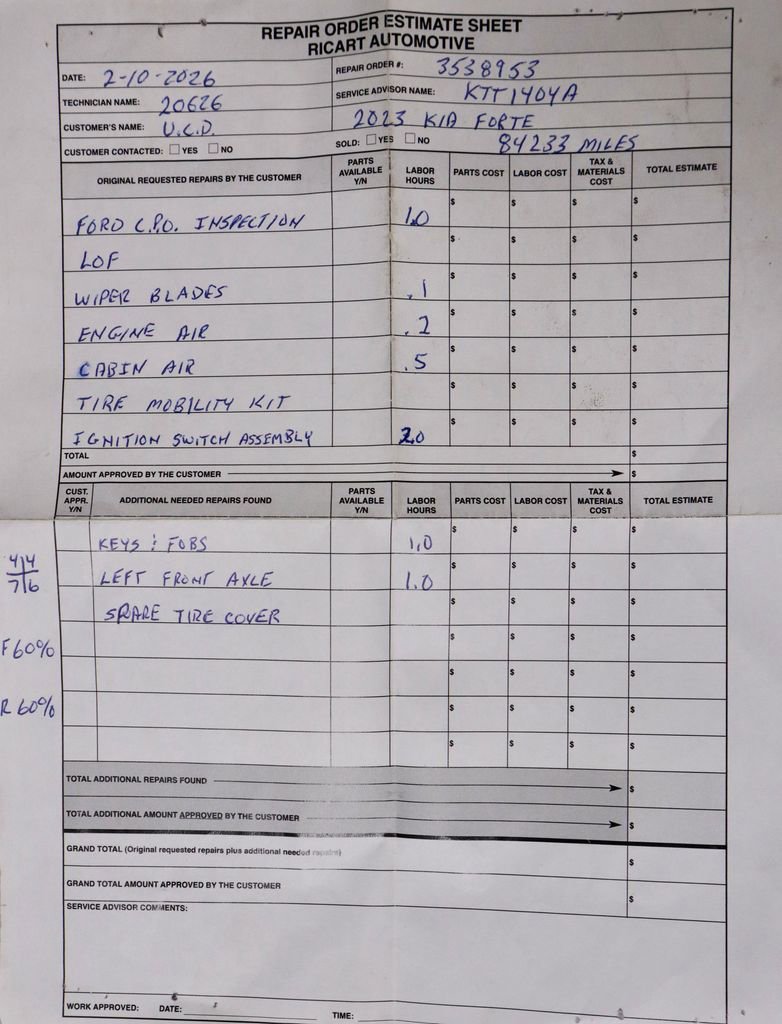 REPAIR ORDER ESTIMATE SHEET
RICART AUTOMOTIVE
DATE: 2-10-2026
REPAIR ORDER #: 3538953
TECHNICIAN NAME: 20626
SERVICE ADVISOR NAME: KTT1404A
CUSTOMER'S NAME: U.C.D.
2023 KIA FORTE
CUSTOMER CONTACTED: YES NO
SOLD: YES NO
84233 MILES
ORIGINAL REQUESTED REPAIRS BY THE CUSTOMER PARTS AVAILABLE Y/N LABOR HOURS PARTS COST LABOR COST TAX & MATERIALS COST TOTAL ESTIMATE
FORD C.P.O. INSPECTION 1.0 $ $ $ $
LOF $ $ $ $
WIPER BLADES .1 $ $ $ $
ENGINE AIR .2 $ $ $ $
CABIN AIR .5 $ $ $ $
TIRE MOBILITY KIT $ $ $ $
IGNITION SWITCH ASSEMBLY 2.0 $ $ $ $
TOTAL $
AMOUNT APPROVED BY THE CUSTOMER $
CUST. APPR. Y/N ADDITIONAL NEEDED REPAIRS FOUND PARTS AVAILABLE Y/N LABOR HOURS PARTS COST LABOR COST TAX & MATERIALS COST TOTAL ESTIMATE
KEYS & FOBS 1.0 $ $ $ $
4 4
7 6
LEFT FRONT AXLE 1.0 $ $ $ $
SPARE TIRE COVER $ $ $ $
F 60% $ $ $ $
$ $ $ $
R 60% $ $ $ $
$ $ $ $
TOTAL ADDITIONAL REPAIRS FOUND $
TOTAL ADDITIONAL AMOUNT APPROVED BY THE CUSTOMER $
GRAND TOTAL (Original requested repairs plus additional needed repairs) $
GRAND TOTAL AMOUNT APPROVED BY THE CUSTOMER $
SERVICE ADVISOR COMMENTS:
WORK APPROVED: DATE: TIME: